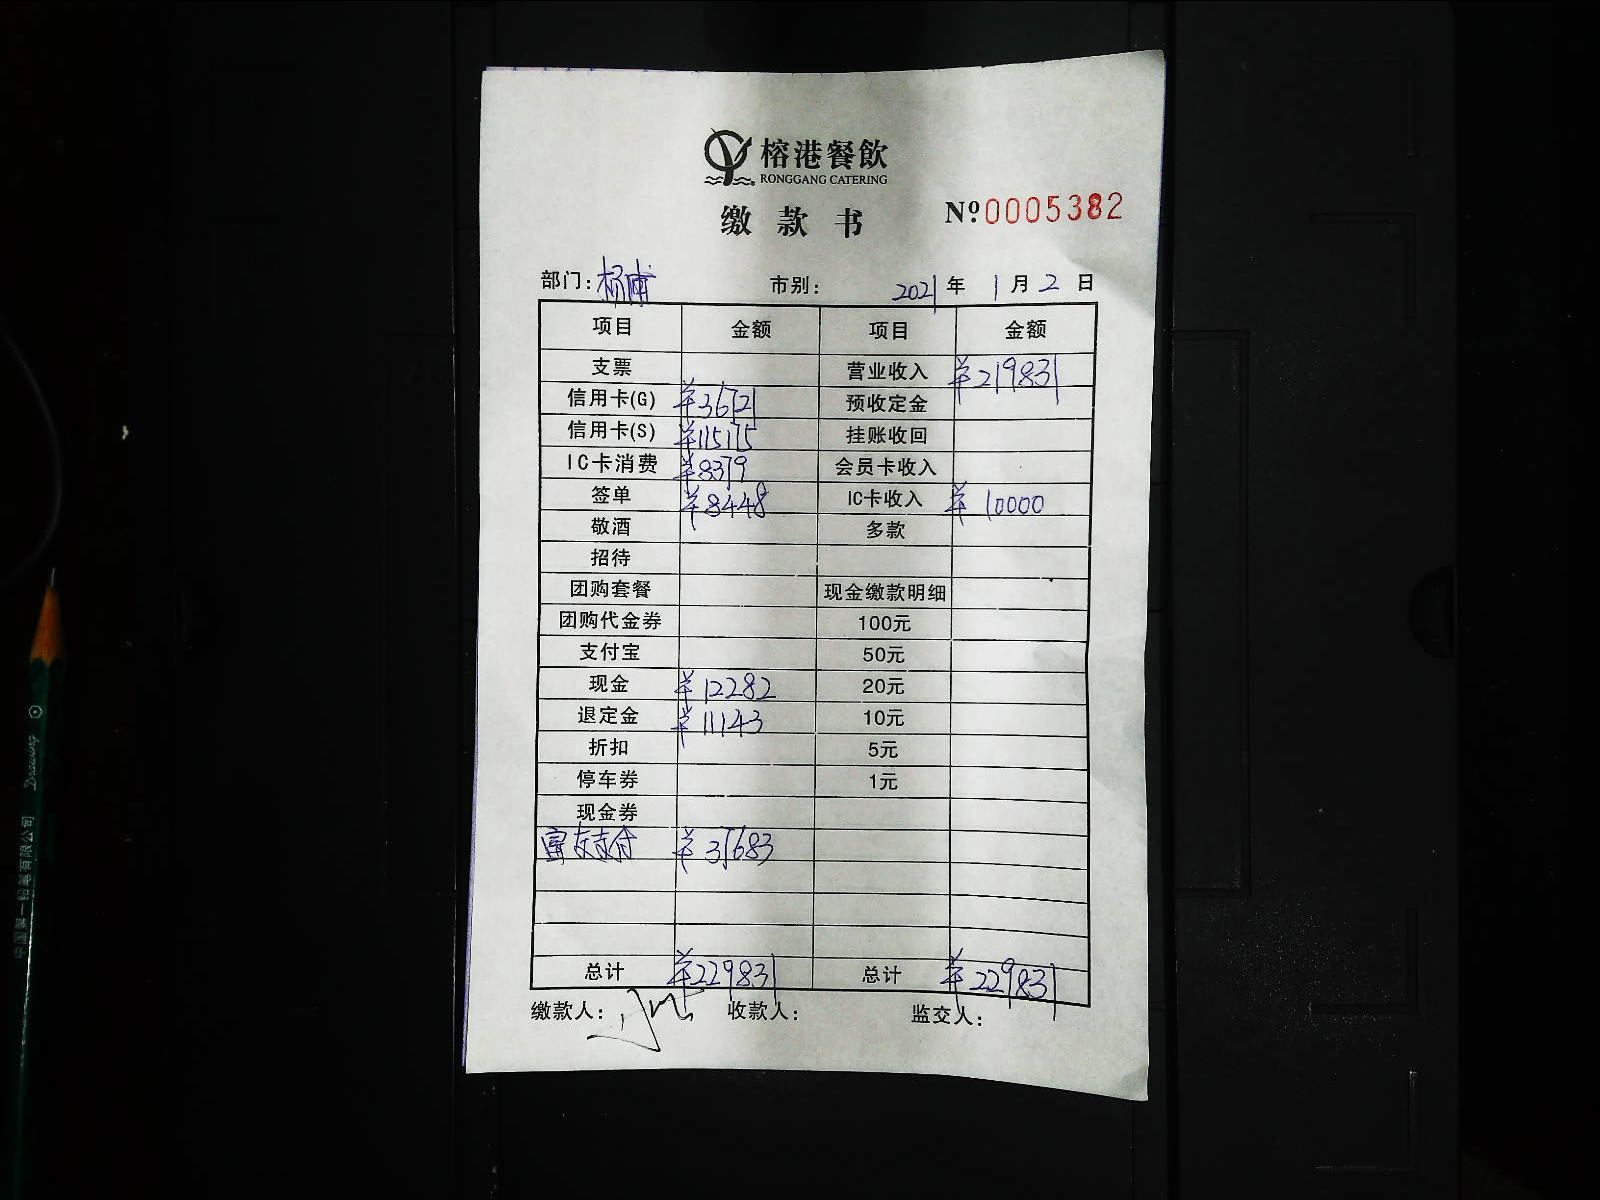 榕港餐飲
RONGGANG CATERING
缴款书 Nº.0005382
部门:杨浦 市别: 2021年1月2日
项目 金额 项目 金额
支票 营业收入 ¥219831
信用卡(G) ¥36721 预收定金
信用卡(S) ¥115175 挂账收回
IC卡消费 ¥8379 会员卡收入
签单 ¥8448 IC卡收入 ¥10000
敬酒 多款
招待
团购套餐 现金缴款明细
团购代金券 100元
支付宝 50元
现金 ¥12282 20元
退定金 ¥11143 10元
折扣 5元
停车券 1元
现金券
富友支付 ¥37683
总计 ¥229831 总计 ¥229831
缴款人: 收款人: 监交人:
中国第一铅笔有限公司 Drawing